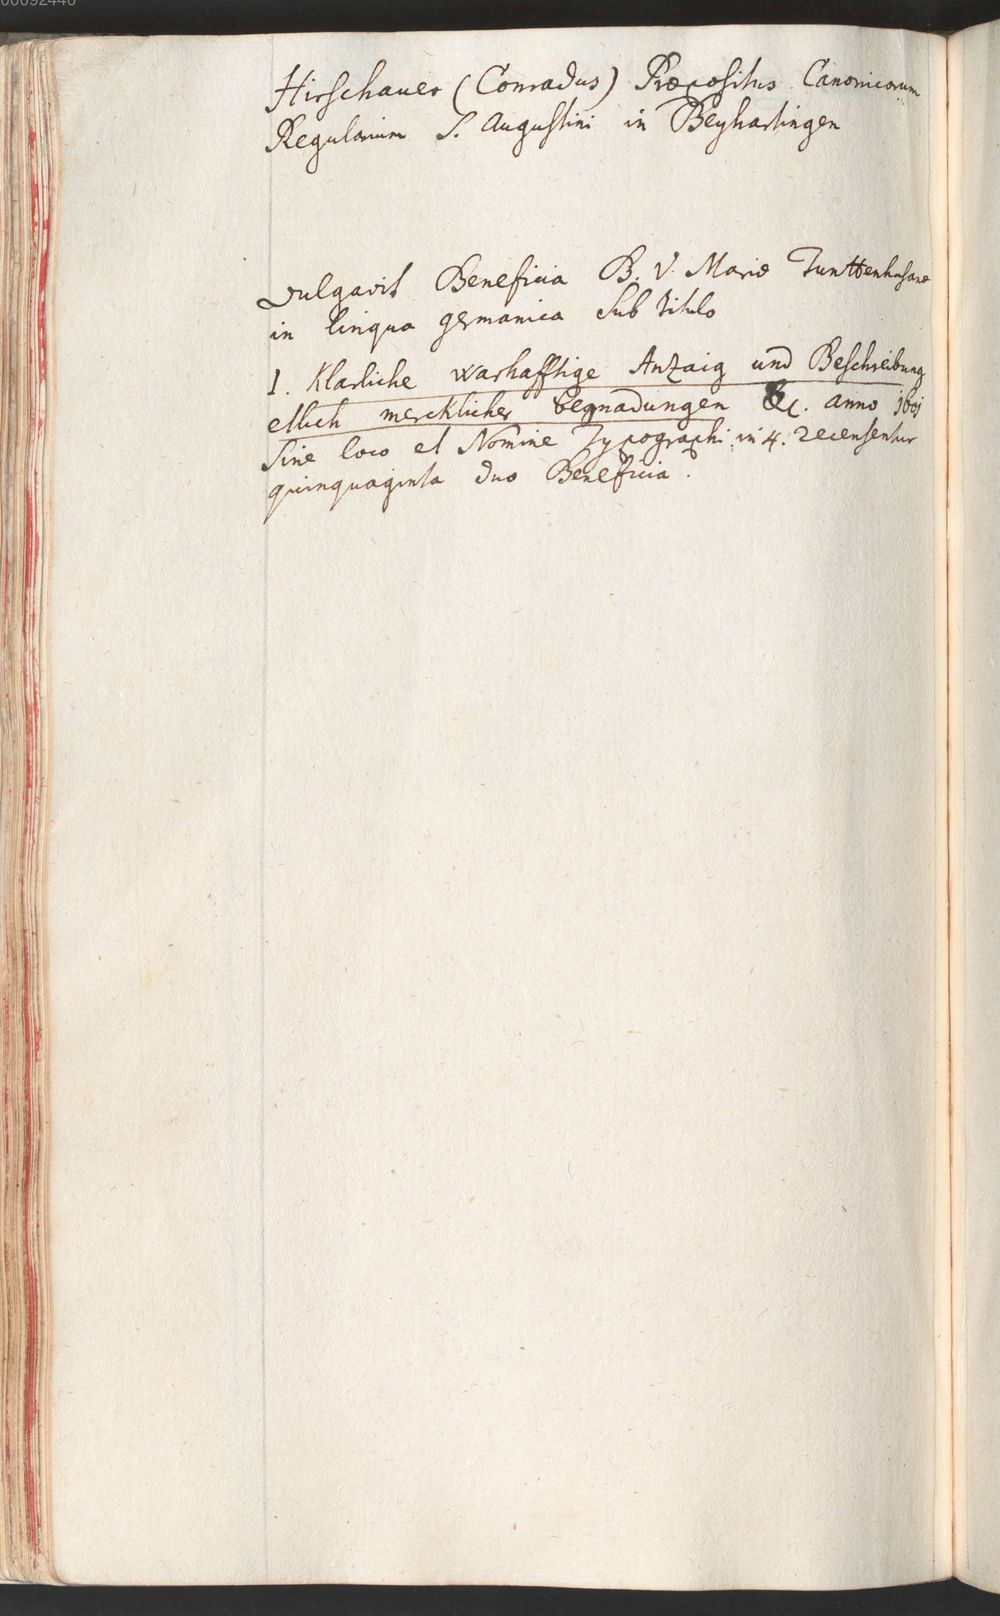 00092440
Hirschauer (Conradus) Præpositus Canonicorum
Regularium S. Augustini in Beyhartingen
vulgavit Beneficia B. V. Mariæ Tunttenhusanæ
in lingua germanica sub titulo
1. Klarliche warhafftige Anzaig und Beschreibung
etlich mercklicher begnadungen &c. anno 1601
sine loco et Nomine Typographi in 4. recensentur
quinquaginta duo Beneficia.